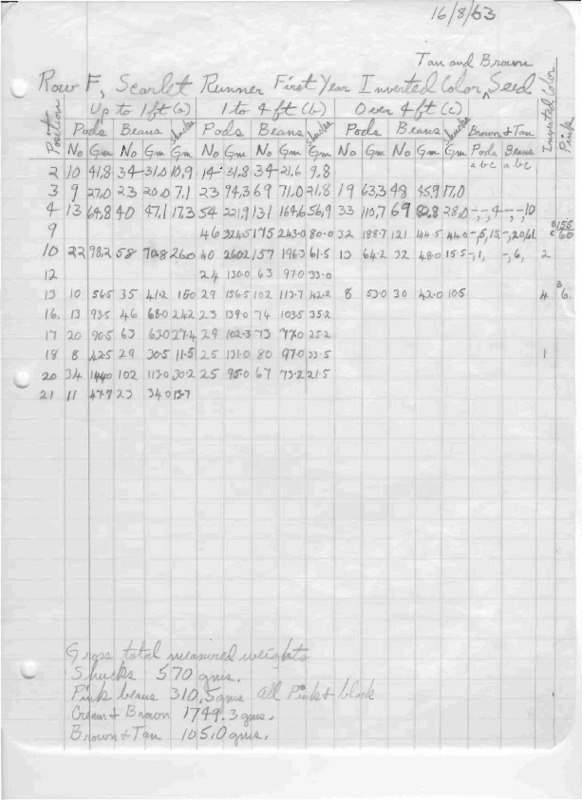 16/8/63
Tan and Brown
Row F, Scarlet Runner First Year Inverted Color, Seed
Up to 1 ft (a) 1 to 4 ft (b) Over 4 ft (c)
Position Pods Beans Shucks Pods Beans Shucks Pods Beans Shucks Brown + Tan Inverted Color Pink
No Gm No Gm Gm No Gm No Gm Gm No Gm No Gm Gm Pods Beans
a b c a b c
2 10 41,8 34 31,0 10,9 14 31,8 34 21,6 9,8
3 9 27,0 23 20,0 7,1 23 94,3 69 71,0 21,8 19 63,3 48 45,9 17,0
4 13 64,8 40 47,1 17,3 54 221,9 131 164,6 56,9 33 110,7 69 82,8 28,0 -,-, 4 -,-,10
9 46 324.5 175 243.0 80.0 32 188.7 121 144.5 44.0 -,5,13 -,20,61 B 155 C 60
10 22 98,2 58 70.8 26.0 40 260.2 157 196.3 61.5 13 64.2 32 48.0 15.5 -,1, -,6, 2
12 24 130.0 63 97.0 33.0
13 10 56.5 35 41.2 15.0 29 156.5 102 113.7 42.2 8 53.0 30 42.0 10.5 4 B 6.
16. 13 93.5 46 68.0 24.2 23 139.0 74 103.5 35.2
17 20 90.5 63 63.0 27.4 29 102.3 73 77.0 25.2
18 8 42.5 29 30.5 11.5 25 131.0 80 97.0 33.5 1
20 34 144.0 102 113.0 30.2 25 95.0 67 73.2 21.5
21 11 47.7 23 34.0 13.7
Gross total measured weights
Shucks 570 gms.
Pink beans 310.5 gms all Pink + black
Cream + Brown 1749.3 gms.
Brown + Tan 105.0 gms.